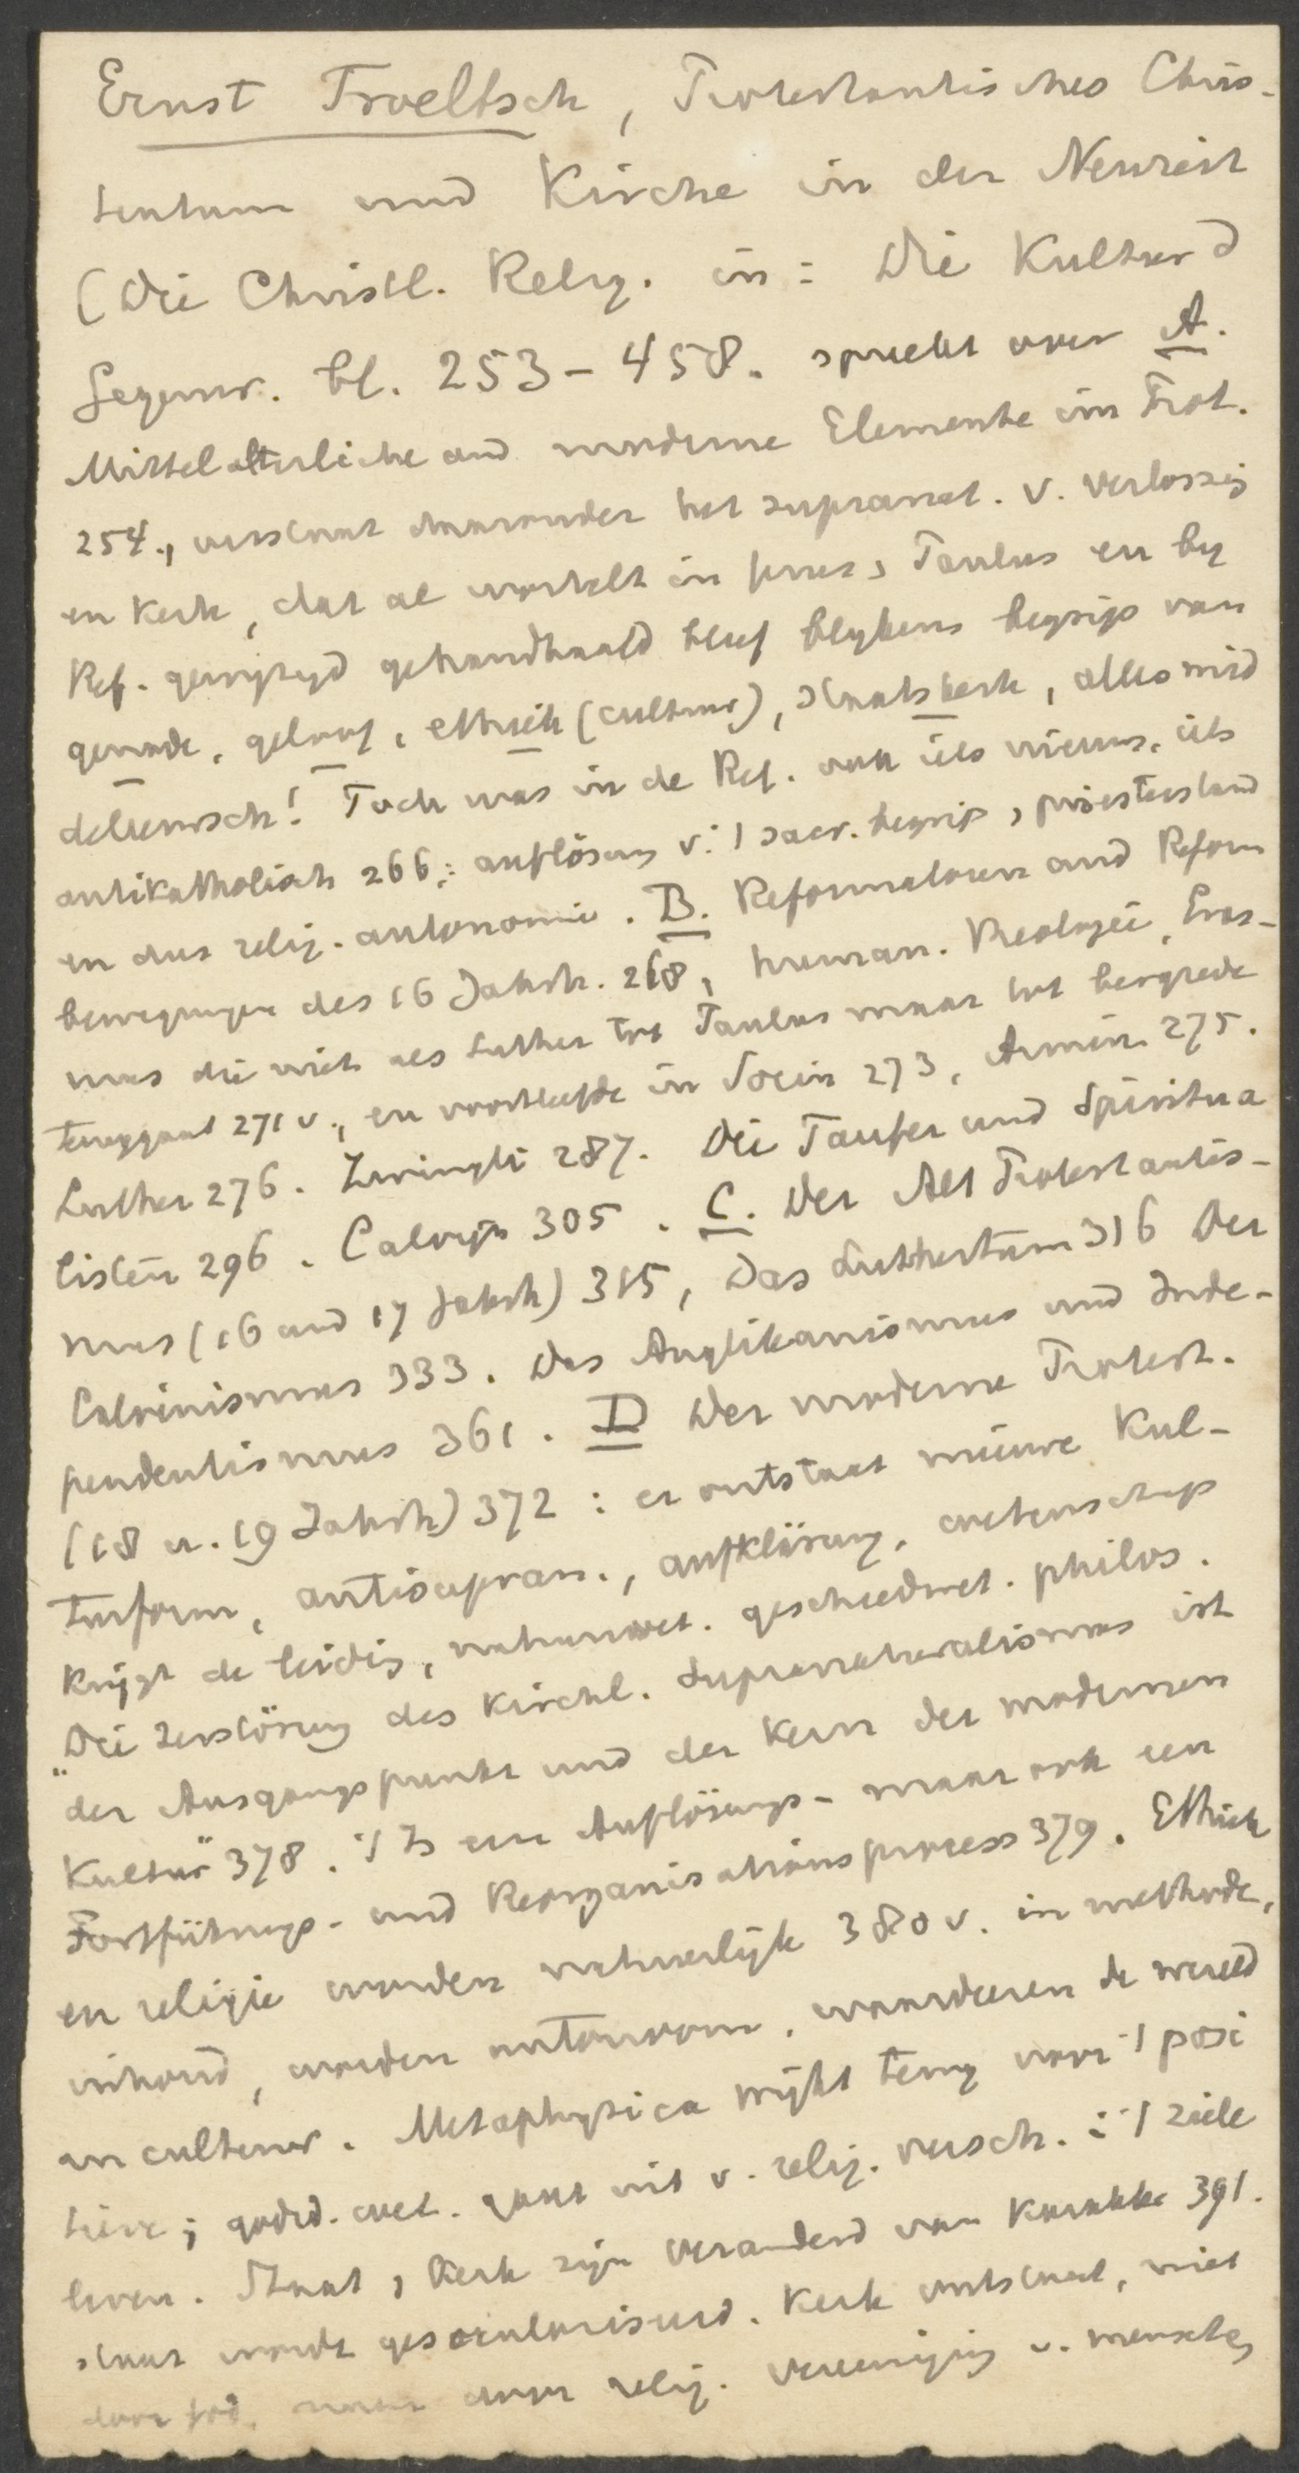 Ernst Troeltsch, Protestantisches Chris-
tentum und Kirche in der Neuzeit
(Die Christl. Relig. in: Die Kultur d
Gegenw. bl. 253-458. spreekt over A.
Mittelalterliche und moderne Elemente im Prot.
254., verstaat daaronder het supranat. v. verlossing
en kerk, dat al wortelt in Paulus en by
Ref. gewyzigd gehandhaafd bleef blykens begrip van
genade, geloof, ethiek (cultuur), Staatskerk, alles mid
deleeuwsch! Toch was in de Ref. ook iets nieuws, iets
antikatholiek 266: auflösung v. 't sacr. begrip, priesterstand
en dus relig. autonomie. B. Reformatoren und Reform
bewegungen des 16 Jahrh. 268, human. theologie, Eras-
mus die niet als Luther tot Paulus maar tot bergrede
teruggaat 271 v., en voortleefde in Socin 273, Armin. 275.
Luther 276. Zwingli 287. Die Taufer und Spiritua
listen 296. Calvijn 305. C. Der Alt Protestantis-
mus (16 und 17 Jahrh) 315, Das Luthertum 316 Der
Calvinismus 333. Das Anglikanismus und Inde-
pendentismus 361. D Der moderne Protest.
(18 u. 19 Jahrh) 372: er ontstaat nieuwe Kul-
turform, antisupran., aufklärung, wetenschap
krijgt de leidig, natuurwet. geschiedwet. philos.
"Die Zerstörung des Kirchl. Supranaturalismus ist
der Ausgangspunkt und der Kern der modernen
Kultur" 378. 't Is een Auflösungs- maar ook een
Fortführungs- und Reorganisationsprocess 379. Ethiek
en religie worden natuurlijk 380 v. in methode,
inhoud, worden autonoom, waardeeren de wereld
en cultuur. Metaphysica wijkt terug voor 't posi
tieve; godsd. wet. gaat uit v. relig. versch. in 't ziele
leven. Staat, kerk zijn veranderd van karakter 391.
staat wordt gesaeculariseerd. Kerk ontstaat, niet
door God, maar door relig. vereeniging v. menschen